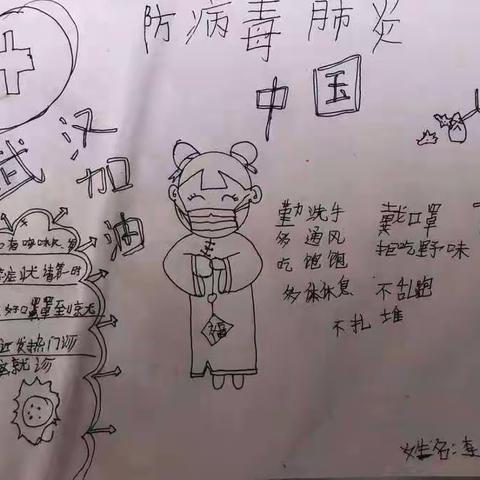 防病毒肺炎
中国
武汉
加油
勤洗手 戴口罩
多通风 拒吃野味
吃饱饱
多休休息 不乱跑
不扎堆
福
症状请第一时
好口罩至
近发热门诊
就诊
姓名: